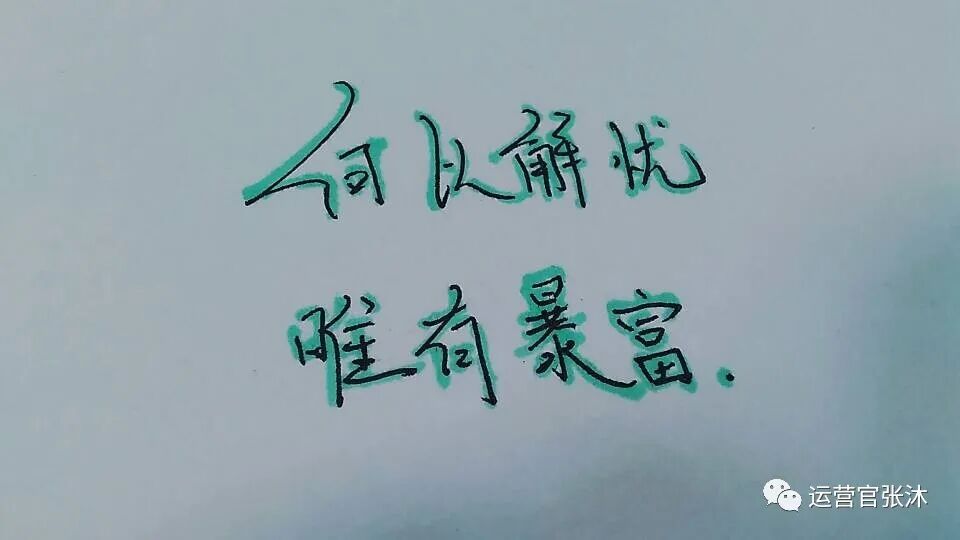 何以解忧
唯有暴富.
运营官张沐